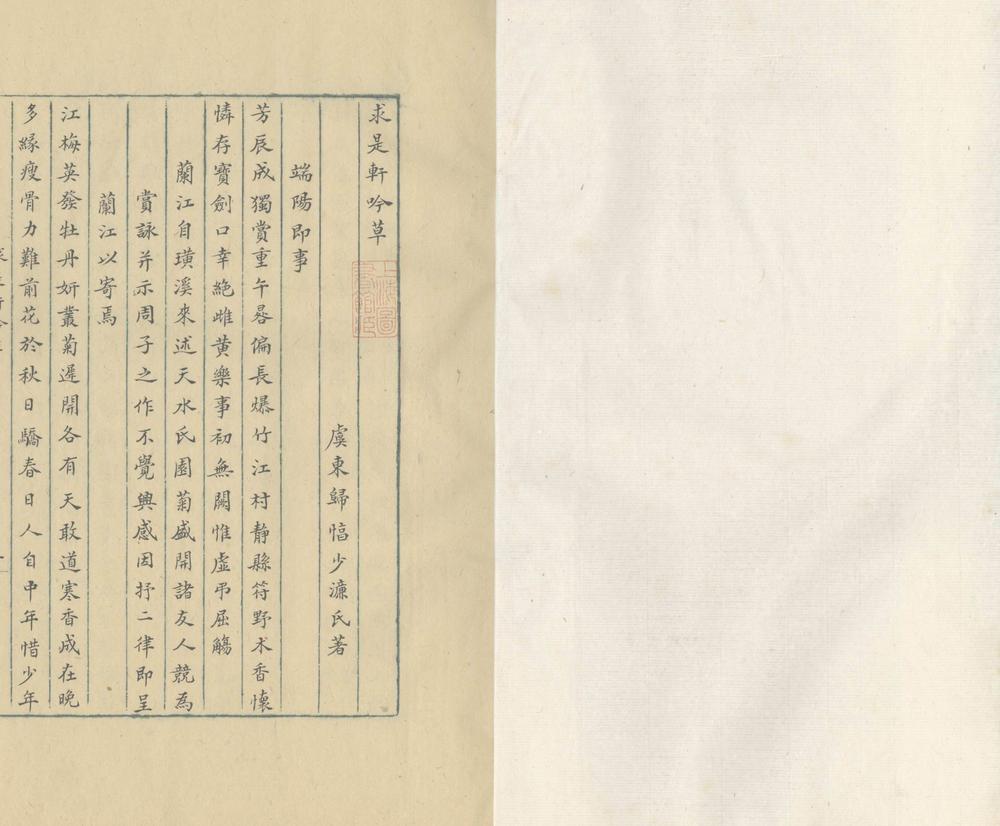 求是軒吟草
虞東歸愊少濂氏著
端陽即事
芳辰成獨賞重午晷偏長爆竹江村靜縣符野术香懷
憐存寶劍口幸絶雌黄樂事初無闕惟虛弔屈觴
蘭江自璜溪來述天水氏園菊盛開諸友人競為
賞詠并示周子之作不覺興感因抒二律即呈
蘭江以寄焉
江梅英發牡丹妍叢菊遲開各有天敢道寒香成在晚
多緣瘦骨力難前花於秋日驕春日人自中年惜少年
上海圖書館藏